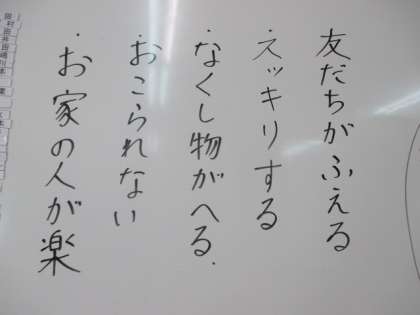 友だちがふえる
・スッキリする
・なくし物がへる.
・おこられない
・お家の人が楽